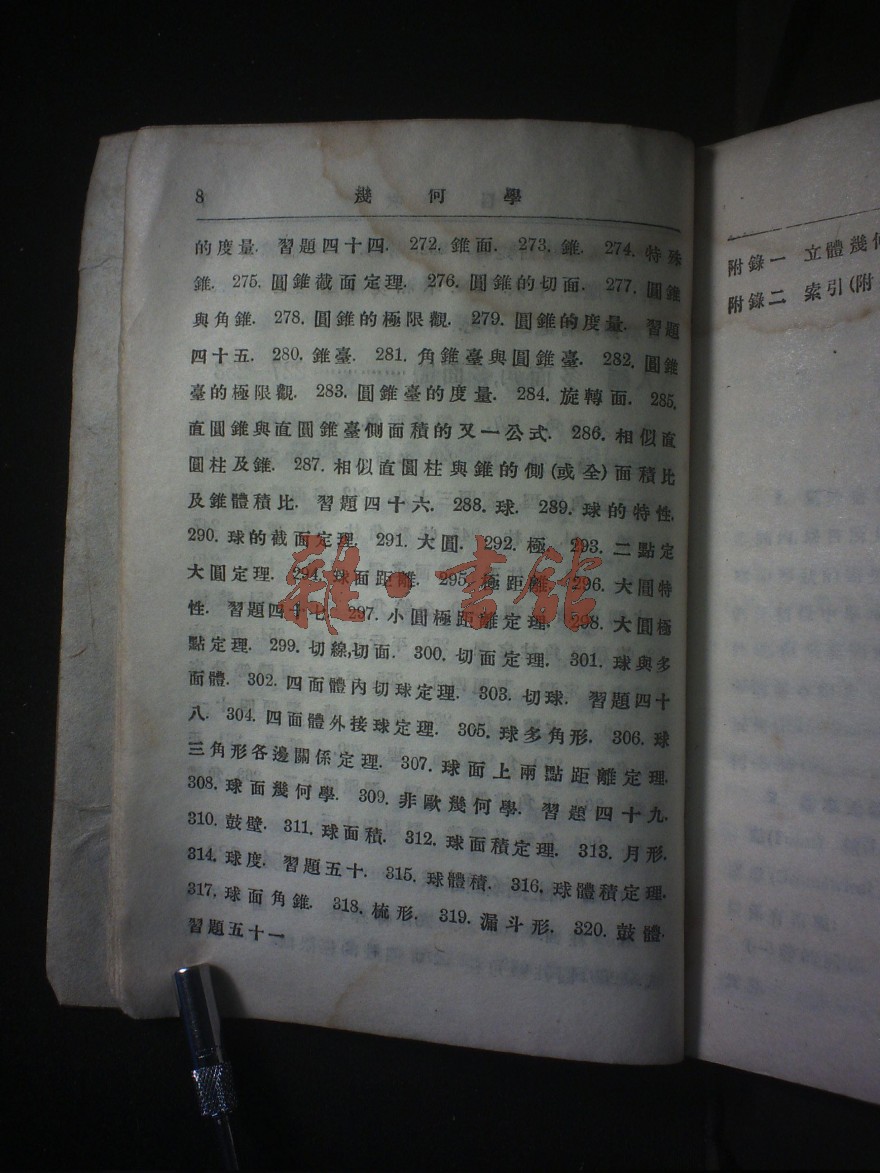 8 幾何學
的度量. 習題四十四. 272. 錐面. 273. 錐. 274. 特殊
錐. 275. 圓錐截面定理. 276. 圓錐的切面. 277. 圓錐
與角錐. 278. 圓錐的極限觀. 279. 圓錐的度量. 習題
四十五. 280. 錐臺. 281. 角錐臺與圓錐臺. 282. 圓錐
臺的極限觀. 283. 圓錐臺的度量. 284. 旋轉面. 285.
直圓錐與直圓錐臺側面積的又一公式. 286. 相似直
圓柱及錐. 287. 相似直圓柱與錐的側(或全)面積比
及錐體積比. 習題四十六. 288. 球. 289. 球的特性.
290. 球的截面定理. 291. 大圓. 292. 極. 293. 二點定
大圓定理. 294. 球面距離. 295. 極距離. 296. 大圓特
性. 習題四十七. 297. 小圓極距離定理. 298. 大圓極
點定理. 299. 切線,切面. 300. 切面定理. 301. 球與多
面體. 302. 四面體內切球定理. 303. 切球. 習題四十
八. 304. 四面體外接球定理. 305. 球多角形. 306. 球
三角形各邊關係定理. 307. 球面上兩點距離定理.
308. 球面幾何學. 309. 非歐幾何學. 習題四十九.
310. 鼓壁. 311. 球面積. 312. 球面積定理. 313. 月形.
314. 球度. 習題五十. 315. 球體積. 316. 球體積定理.
317. 球面角錐. 318. 梳形. 319. 漏斗形. 320. 鼓體.
習題五十一
雜·書館
附錄一 立體幾何
附錄二 索引(附